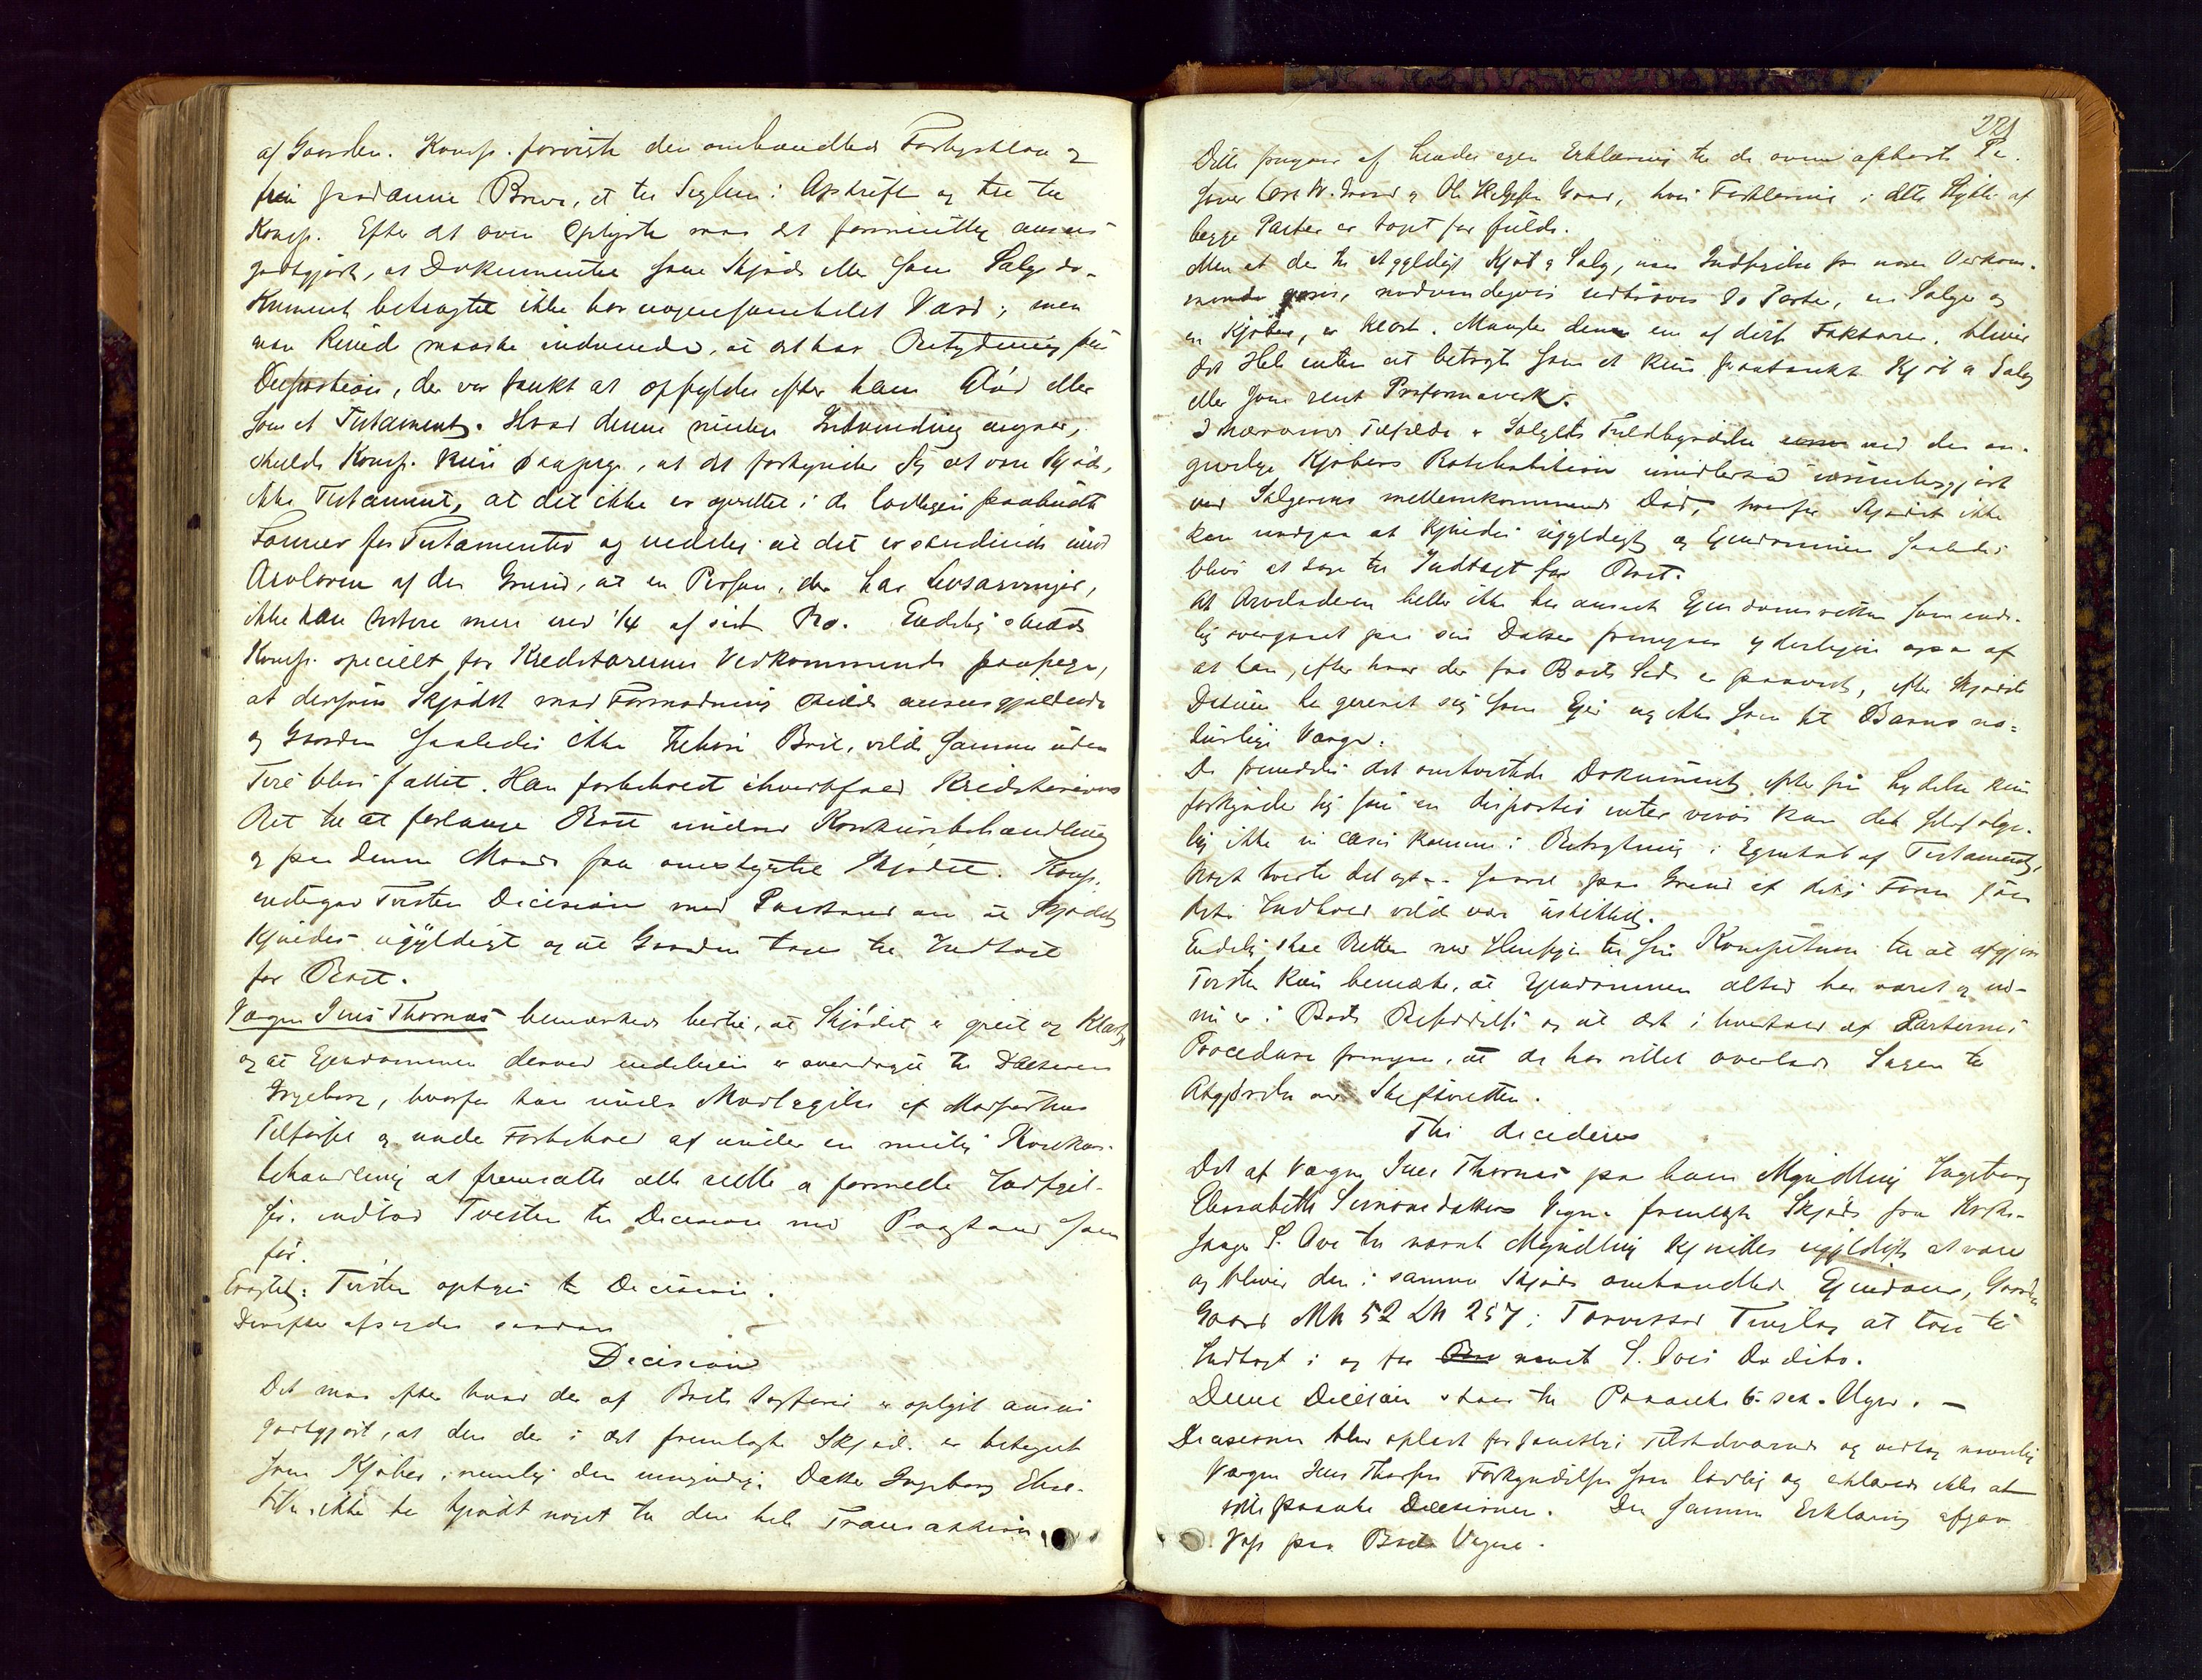 af Gaarden. Komp. foreviste den omhandlede Forhyrelse og
fem saadanne Breve, et til Seglem: Afskrift og tre til
Komp. Efter det oven Oplyste maa det formentlig ansees
godtgjort, at Dokumentet som Skjøde eller som Salgsdo-
kument betragtet ikke har nogensomhelst Værd; men
man kunde maaske indvende, at det har Betydning som
Disposition, der var tænkt at opfyldes efter hans Død eller
som et Testament. Hvad denne sidste Indvending angaar,
skulde Komp. kun paapege, at det forkynder sig at være Skjøde,
ikke Testament, at det ikke er oprettet i de lovligen paabudte
Former for Testamenter og endelig at det er stridende mod
Arveloven af den Grund, at en Person, der har Livsarvinger,
ikke kan testere mere end 1/4 af sit Bo. Endelig skulde
Komp. specielt for Kreditorernes Vedkommende paapege,
at dersom Skjødet mod Formodning skulde ansees gjældende
og Gaarden saaledes ikke tilhøre Boet, vilde samme uden
Tvil blive fallit. Han forbeholdt ihvertfald Kreditorernes
Ret til at forlange Boet under Konkursbehandling
og paa denne Maade faa omstyrtet Skjødet. Komp.
indtager Tvisten Decision med Paastand om at Skjødet
kjendes ugyldigt og at Gaarden tages til Indtægt
for Boet.
Vergen Jens Thomas bemærkede hertil, at Skjødet er greit og klart,
og at Ejendommen derved endeligen er overdraget til Datteren
Ingeborg, hvorfor han under Modsigelse af Modpartens
Tilførsel og under Forbehold af under en mulig Konkurs-
behandling at fremsætte alle reelle og formelle Indsigel-
ser. indlod Tvisten til Decision med Paastand som
før.
Eragtet: Tvisten optages til Decision.
Derefter afsagdes saadan
Decision
Det maa efter hvad der af Boets Sagfører er oplyst ansees
godtgjort, at den der i det fremlagte Skjøde er betegnet
som Kjøber, nemlig den umyndige Datter Ingeborg Elisa-
beth, ikke har kjendt noget til den hele Transaktion.
221
Dette fremgaar af hendes egen Erklæring til de oven anførte Per-
soner Lars W. Gaard og Ole Helgesen Gaard, hvis Forklaring i dette Stykke af
begge Parter er taget for fulde.
Men at der til et gyldigt Kjøb og Salg, som Indsigelse fra nogen Vedkom-
mende gjøres, nødvendigvis udkræves to Parter, en Sælger og
en Kjøber, er klart. Mangler denne ene af disse Faktorer, bliver
det Hele enten at betragte som et kun paatænkt Kjøb og Salg
eller som rent Proformaværk.
I nærværende Tilfælde er Salgets Fuldbyrdelse ved den an-
givelige Kjøbers Ratihabition imidlertid umuliggjort
ved Sælgerens mellemkommende Død, hvorfor Skjødet ikke
kan undgaa at kjendes ugyldigt og Ejendommen saaledes
blive at tage til Indtægt for Boet.
At Arveladeren heller ikke har anseet Ejendomsretten som ende-
lig overgaaet paa sin Datter fremgaar yderligere ogsaa af
at han, efter hvad der fra Boets Side er paavist, efter Skjødets
Datum har gereret sig som Ejer og ikke som sit Barns na-
turlige Verge.
Da fremdeles det omtvistede Dokument, efter sin Lydelse kun
forkynder sig som en disposition inter vivos kan det selvfølge-
lig ikke in casu komme i Betragtning i Egenskab af Testament,
noget hvortil det ogsaa saavel paa Grund af dets Form som
dets Indhold vilde være uskikket.
Endelig skal Retten med Hensyn til sin Kompetence til at afgjøre
Tvisten kun bemærke, at Ejendommen altid har været og end-
nu er i Boets Besiddelse og at det i hvertfald af Parternes
Procedure fremgaar, at de har villet overlade Sagen til
Afgjørelse ved Skifteretten.
Thi decideres
Det af Vergen Jens Thomas paa hans Myndling Ingeborg
Elisabeth Simonsdatters Vegne fremlagte Skjøde fra Kirke-
sanger S. Aoe til nævnte Myndling kjendes ugyldigt at være
og bliver den i samme Skjøde omhandlede Ejendom, Gaarden
Gaard M№ 52 L№ 257 i Torvestad Tinglag at tage til
Indtægt i og for nævnte S. Aoes Dødsbo.
Denne Decision staar til Paaanke 6- sex - Uger. -
Decisionen blev oplæst for samtlige Tilstedeværende og vedtog navnlig
Vergen Jens Thomas Forkyndelsen som lovlig og erklærede ikke at
ville paaanke Decisionen. Den samme Erklæring afgav
Voss paa Boets Vegne.